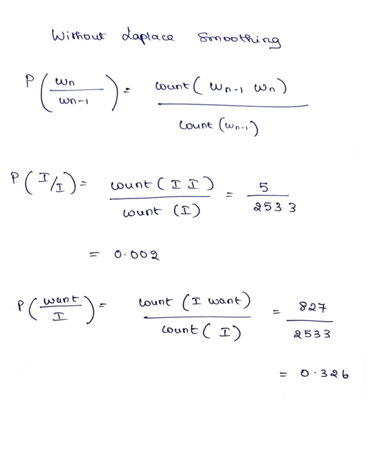 Without Laplace Smoothing
P(wn/wn-1) = count(wn-1 wn)/count(wn-1)
P(I/I) = count(I I)/count(I) = 5/2533
= 0.002
P(want/I) = count(I want)/count(I) = 827/2533
= 0.326